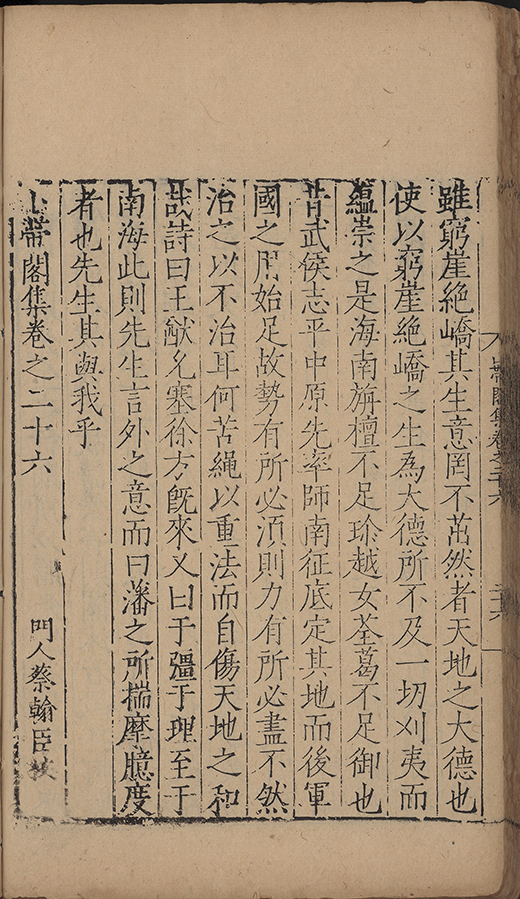 雖窮崖絶嶠其生意罔不茁然者天地之大德也
使以窮崖絶嶠之生為大德所不及一切刈夷而
蘊崇之是海南旃檀不足珎越女荃葛不足御也
昔武侯志平中原先率師南征底定其地而後軍
國之用始足故勢有所必湏則力有所必盡不然
治之以不治耳何苦繩以重法而自傷天地之和
哉詩曰王猷允塞徐方旣來又曰于彊于理至于
南海此則先生言外之意而曰藩之所揣摩臆度
者也先生其與我乎
山帶閣集卷之二十六
門人蔡翰臣校
帶閣集卷之二十六